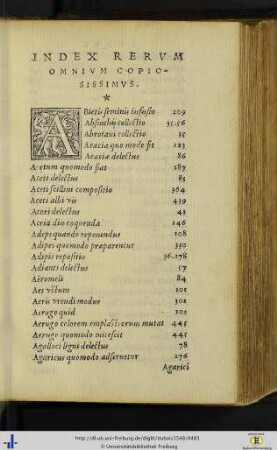 INDEX RERVM
OMNIVM COPIO-
SISSIMVS.
*
ABietis seminis infusio 209
Absinthij collectio 35.56
Abrotani collectio 35
Acacia quo modo fit 123
Acaciæ delectus 86
Acetum quomodo fiat 287
Aceti delectus 83
Aceti scillini compositio 364
Aceti albi vis 439
Acori delectus 43
Acria diu coquenda 146
Adeps quando reponendus 108
Adipes quomodo præparentur 330
Adipis repositio 36.178
Adianti delectus 57
Aëromeli 84
Aes vstum 101
Aeris vrendi modus 101
Aerugo quid 101
Aerugo colorem emplastrorum mutat 445
Aerugo quomodo mitescit 445
Agalloci ligni delectus 78
Agaricus quomodo asseruetur 276
Agarici
http://dl.ub.uni-freiburg.de/diglit/dubois1548/0483
© Universitätsbibliothek Freiburg